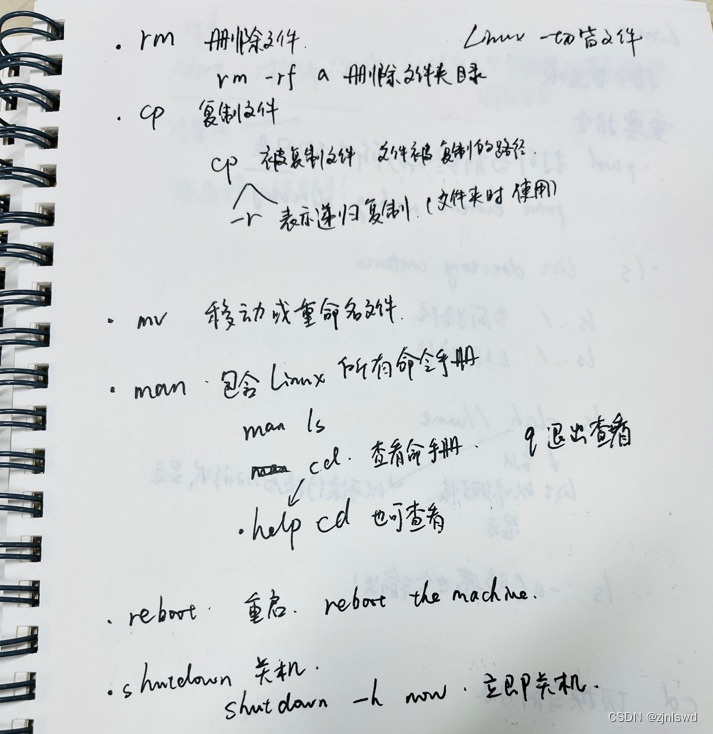 · rm 删除文件. Linux 一切皆文件
rm -rf a 删除文件夹目录
· cp 复制文件
cp 被复制文件 文件被复制的路径.
-r 表示递归复制.(文件夹时使用)
· mv 移动或重命名文件.
· man · 包含Linux所有命令手册
man ls
cd. 查看命手册. q 退出查看
· help cd 也可查看
· reboot · 重启. reboot the machine.
· shutdown 关机.
shutdown -h now · 立即关机.
CSDN @zjnlswd